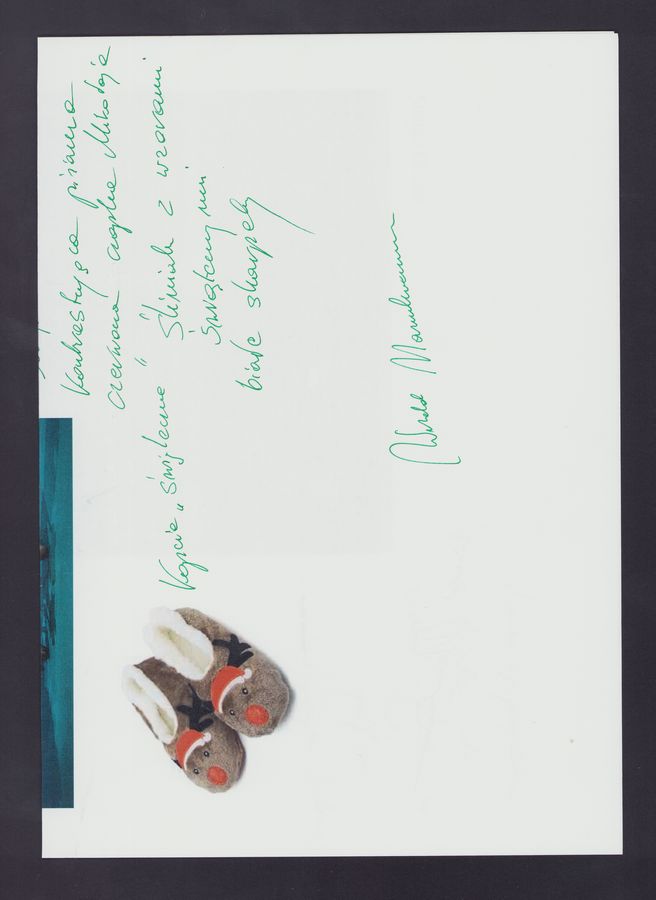 Kontrastująca piżama
czerwona czapka Mikołaja
Kapcie „świąteczne” Śliniak z wzorami
świątecznymi
białe skarpety
Witold